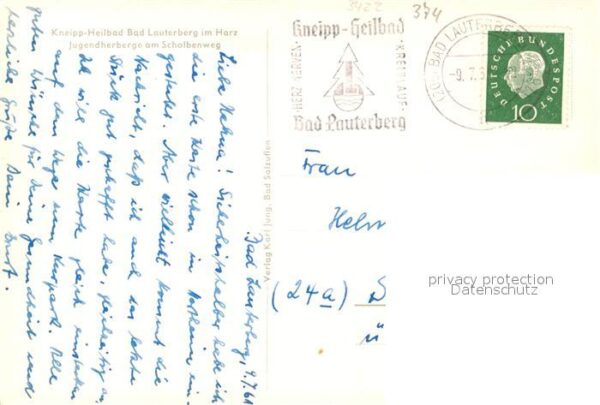 Kneipp-Heilbad Bad Lauterberg im Harz
Jugendherberge am Scholbenweg
3422
374
Kneipp-Heilbad
HERZ NERVEN
KREISLAUF
Bad Lauterberg
BAD LAUTERBERG
-9.7.6
DEUTSCHE BUNDESPOST
10
Bad Lauterberg, 9.7.61
Liebe Helma! Sicherheitshalber habe ich
die erste Karte schon in
gesteckt. Aber vielleicht kommt die
Nachricht, daß ich auch das letzte
Stück gut geschafft habe, gleichzeitig an.
Ich will die Karte gleich einstecken
auf dem Wege zum Kurpark. Alle
guten Wünsche für Deine Gesundheit und
herzliche Grüße Dein Ernst.
Verlag Karl Jung, Bad Salzuflen
Frau
Helm
(24a)
privacy protection
Datenschutz